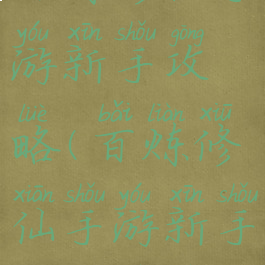 yóu xīn shǒu gōng
游新手攻
lüè bǎi liàn xiū
略(百炼修
xiān shǒu yóu xīn shǒu
仙手游新手